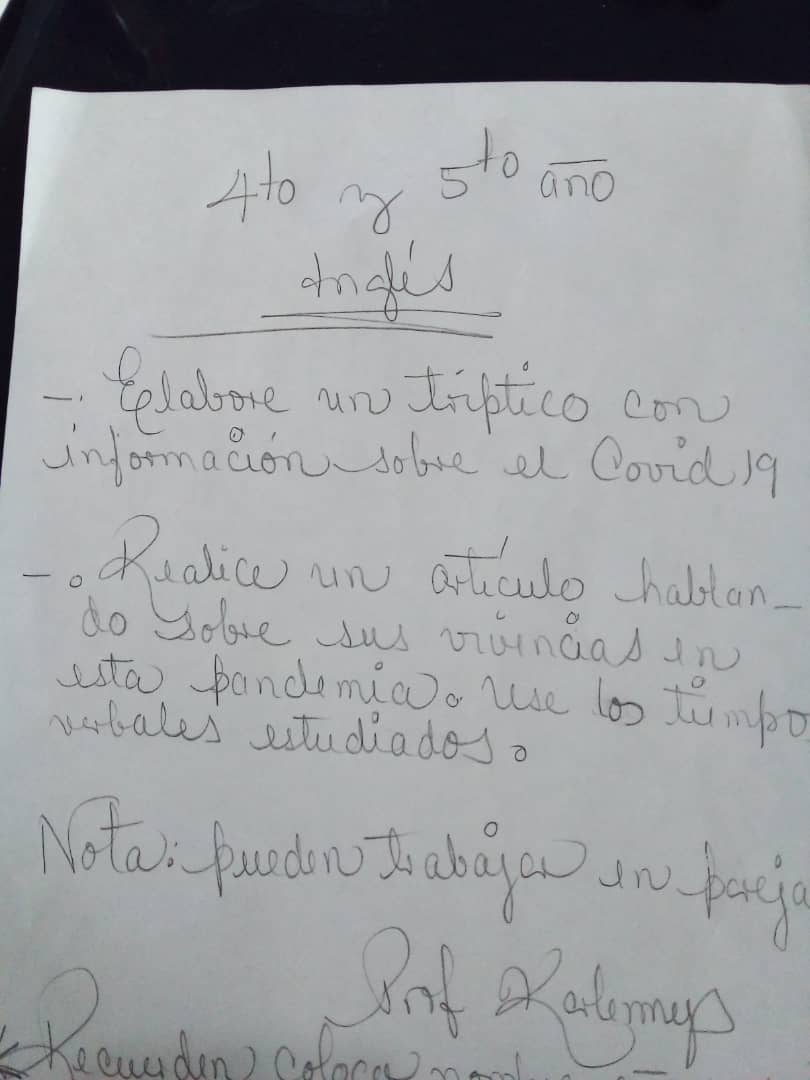 4to y 5to año
Inglés
-. Elabore un tríptico con
información sobre el Covid 19
-. Realice un artículo hablan_
do sobre sus vivencias en
esta pandemia. Use los tiempo
verbales estudiados.
Nota: pueden trabajar en pareja
Prof Karlennys
Recuerden coloca